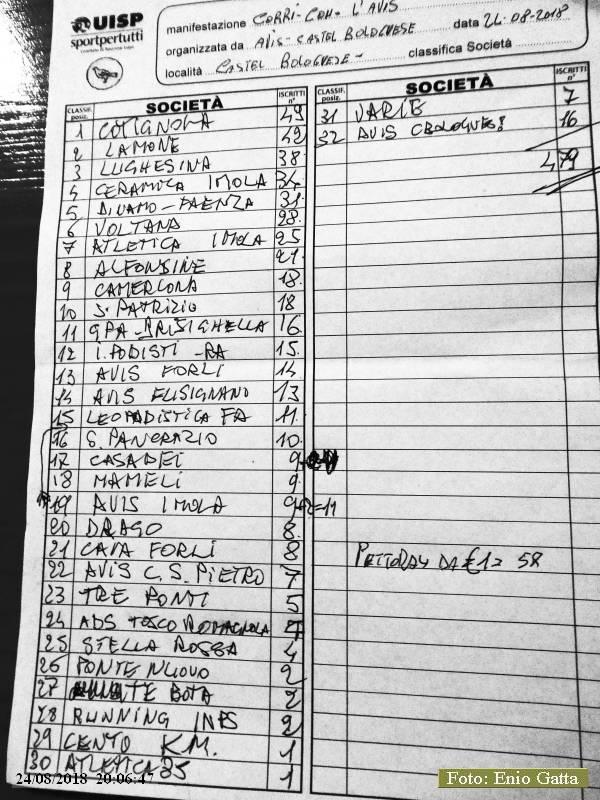 UISP
sportpertutti
manifestazione CORRI-CON L'AVIS
organizzata da AVIS-CASTEL BOLOGNESE data 24-08-2018
località CASTEL BOLOGNESE- classifica Società
CLASSIF. posiz. SOCIETÀ ISCRITTI n°
1 COTIGNOLA 49
2 LAMONE 42
3 LUGHESINA 38
4 CERAMICA IMOLA 34
5 DINAMO-FAENZA 31
6 VOLTANA 28
7 ATLETICA IMOLA 25
8 ALFONSINE 21
9 CAMERLONA 18
10 S. PATRIZIO 18
11 GPA-BRISIGHELLA 16
12 I.PODISTI -RA 15
13 AVIS FORLI 14
14 AVIS FUSIGNANO 13
15 LEOPODISTICA FA 11
16 S. PANCRAZIO 10
17 CASADEI 9
18 MAMELI 9
19 AVIS IMOLA 9+2=11
20 DRAGO 8
21 CAVA FORLI 8
22 AVIS C.S. PIETRO 7
23 TRE PONTI 5
24 ADS TOSCO ROMAGNOLA 4
25 STELLA ROSSA 4
26 PONTE NUOVO 2
27 BOTA 2
28 RUNNING INPS 2
29 CENTO KM. 1
30 ATLETICA 85 1
CLASSIF. posiz. SOCIETÀ ISCRITTI n°
31 VARIE 7
32 AVIS CBOLOGNES? 16
479
PETTORALI DA €1= 58
24/08/2018 20:06:47
Foto: Enio Gatta